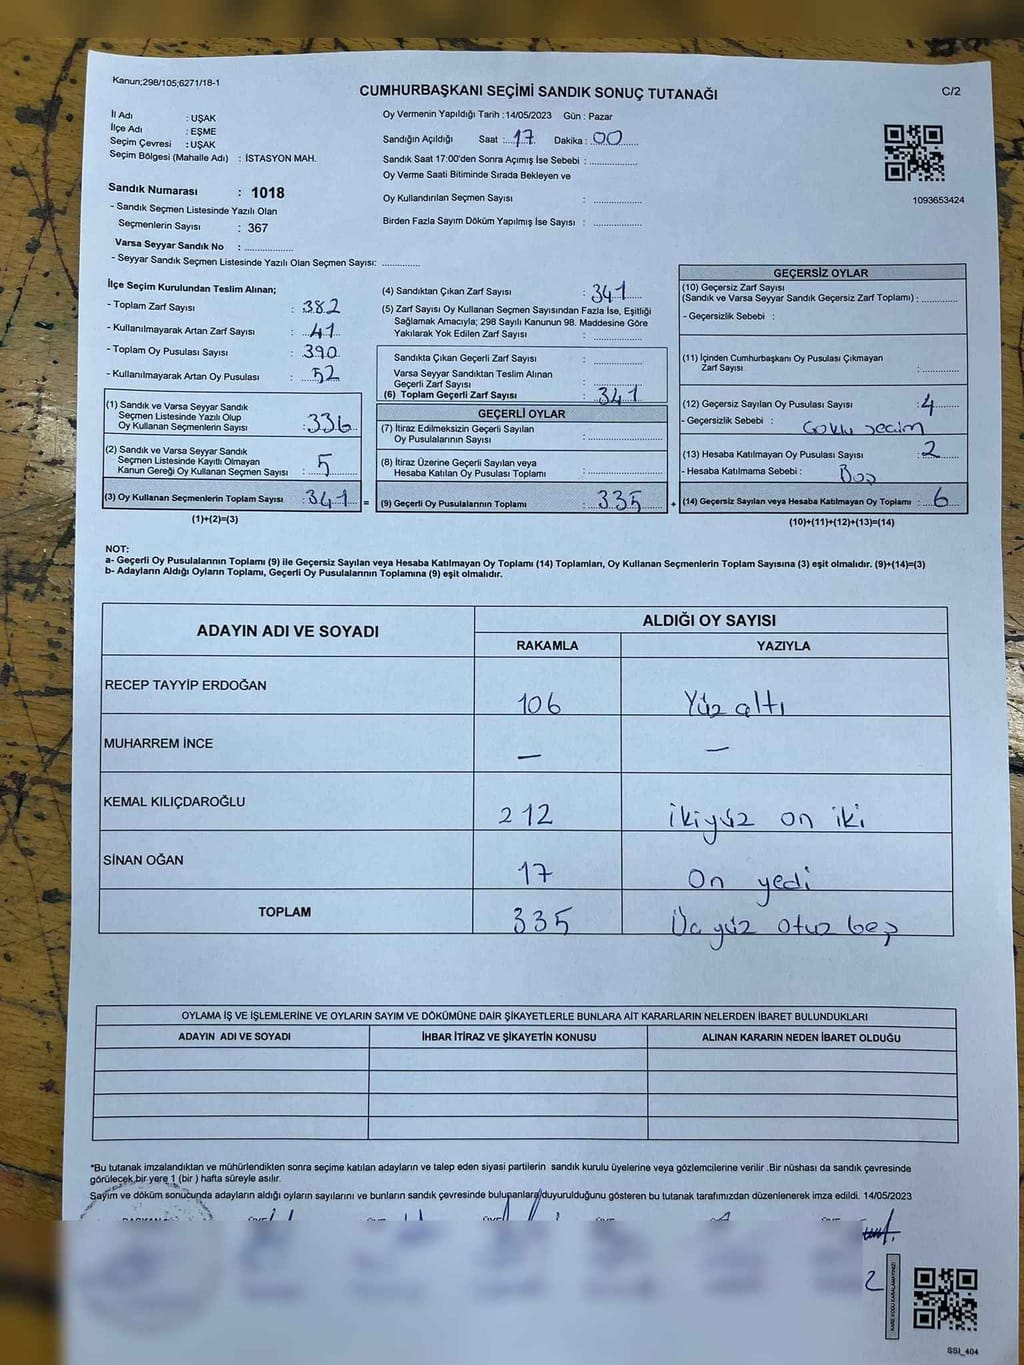 Kanun;298/105;6271/18-1
CUMHURBAŞKANI SEÇİMİ SANDIK SONUÇ TUTANAĞI
C/2
İl Adı : UŞAK
İlçe Adı : EŞME
Seçim Çevresi : UŞAK
Seçim Bölgesi (Mahalle Adı) : İSTASYON MAH.
Oy Vermenin Yapıldığı Tarih : 14/05/2023 Gün : Pazar
Sandığın Açıldığı Saat : 17 Dakika : 00
Sandık Saat 17:00'den Sonra Açımış İse Sebebi : ..............
Oy Verme Saati Bitiminde Sırada Bekleyen ve
Oy Kullandırılan Seçmen Sayısı : ..............
Birden Fazla Sayım Döküm Yapılmış İse Sayısı : ..............
1093653424
Sandık Numarası : 1018
- Sandık Seçmen Listesinde Yazılı Olan
Seçmenlerin Sayısı : 367
Varsa Seyyar Sandık No : ..............
- Seyyar Sandık Seçmen Listesinde Yazılı Olan Seçmen Sayısı: ............
İlçe Seçim Kurulundan Teslim Alınan;
- Toplam Zarf Sayısı : 382
- Kullanılmayarak Artan Zarf Sayısı : 41
- Toplam Oy Pusulası Sayısı : 390
- Kullanılmayarak Artan Oy Pusulası : 52
(1) Sandık ve Varsa Seyyar Sandık
Seçmen Listesinde Yazılı Olup
Oy Kullanan Seçmenlerin Sayısı : 336
(2) Sandık ve Varsa Seyyar Sandık
Seçmen Listesinde Kayıtlı Olmayan
Kanun Gereği Oy Kullanan Seçmen Sayısı : 5
(3) Oy Kullanan Seçmenlerin Toplam Sayısı : 341 =
(1)+(2)=(3)
(4) Sandıktan Çıkan Zarf Sayısı : 341
(5) Zarf Sayısı Oy Kullanan Seçmen Sayısından Fazla İse, Eşitliği
Sağlamak Amacıyla; 298 Sayılı Kanunun 98. Maddesine Göre
Yakılarak Yok Edilen Zarf Sayısı : ..............
Sandıkta Çıkan Geçerli Zarf Sayısı : ..............
Varsa Seyyar Sandıktan Teslim Alınan
Geçerli Zarf Sayısı : ..............
(6) Toplam Geçerli Zarf Sayısı : 341
GEÇERLİ OYLAR
(7) İtiraz Edilmeksizin Geçerli Sayılan
Oy Pusulalarının Sayısı : ..............
(8) İtiraz Üzerine Geçerli Sayılan veya
Hesaba Katılan Oy Pusulası Toplamı : ..............
(9) Geçerli Oy Pusulalarının Toplamı : 335 +
GEÇERSİZ OYLAR
(10) Geçersiz Zarf Sayısı
(Sandık ve Varsa Seyyar Sandık Geçersiz Zarf Toplamı) : ............
- Geçersizlik Sebebi :
(11) İçinden Cumhurbaşkanı Oy Pusulası Çıkmayan
Zarf Sayısı : ............
(12) Geçersiz Sayılan Oy Pusulası Sayısı : 4
- Geçersizlik Sebebi : Çoklu seçim
(13) Hesaba Katılmayan Oy Pusulası Sayısı : 2
- Hesaba Katılmama Sebebi : Boş
(14) Geçersiz Sayılan veya Hesaba Katılmayan Oy Toplamı : 6
(10)+(11)+(12)+(13)=(14)
NOT:
a- Geçerli Oy Pusulalarının Toplamı (9) ile Geçersiz Sayılan veya Hesaba Katılmayan Oy Toplamı (14) Toplamları, Oy Kullanan Seçmenlerin Toplam Sayısına (3) eşit olmalıdır. (9)+(14)=(3)
b- Adayların Aldığı Oyların Toplamı, Geçerli Oy Pusulalarının Toplamına (9) eşit olmalıdır.
ADAYIN ADI VE SOYADI
ALDIĞI OY SAYISI
RAKAMLA YAZIYLA
RECEP TAYYİP ERDOĞAN 106 Yüz altı
MUHARREM İNCE — —
KEMAL KILIÇDAROĞLU 212 ikiyüz on iki
SİNAN OĞAN 17 On yedi
TOPLAM 335 Üçyüz otuz beş
OYLAMA İŞ VE İŞLEMLERİNE VE OYLARIN SAYIM VE DÖKÜMÜNE DAİR ŞİKAYETLERLE BUNLARA AİT KARARLARIN NELERDEN İBARET BULUNDUKLARI
ADAYIN ADI VE SOYADI İHBAR İTİRAZ VE ŞİKAYETİN KONUSU ALINAN KARARIN NEDEN İBARET OLDUĞU
*Bu tutanak imzalandıktan ve mühürlendikten sonra seçime katılan adayların ve talep eden siyasi partilerin sandık kurulu üyelerine veya gözlemcilerine verilir .Bir nüshası da sandık çevresinde
görülecek bir yere 1 (bir ) hafta süreyle asılır.
Sayım ve döküm sonucunda adayların aldığı oyların sayılarını ve bunların sandık çevresinde bulunanlara duyurulduğunu gösteren bu tutanak tarafımızdan düzenlenerek imza edildi. 14/05/2023
2
SSI_404